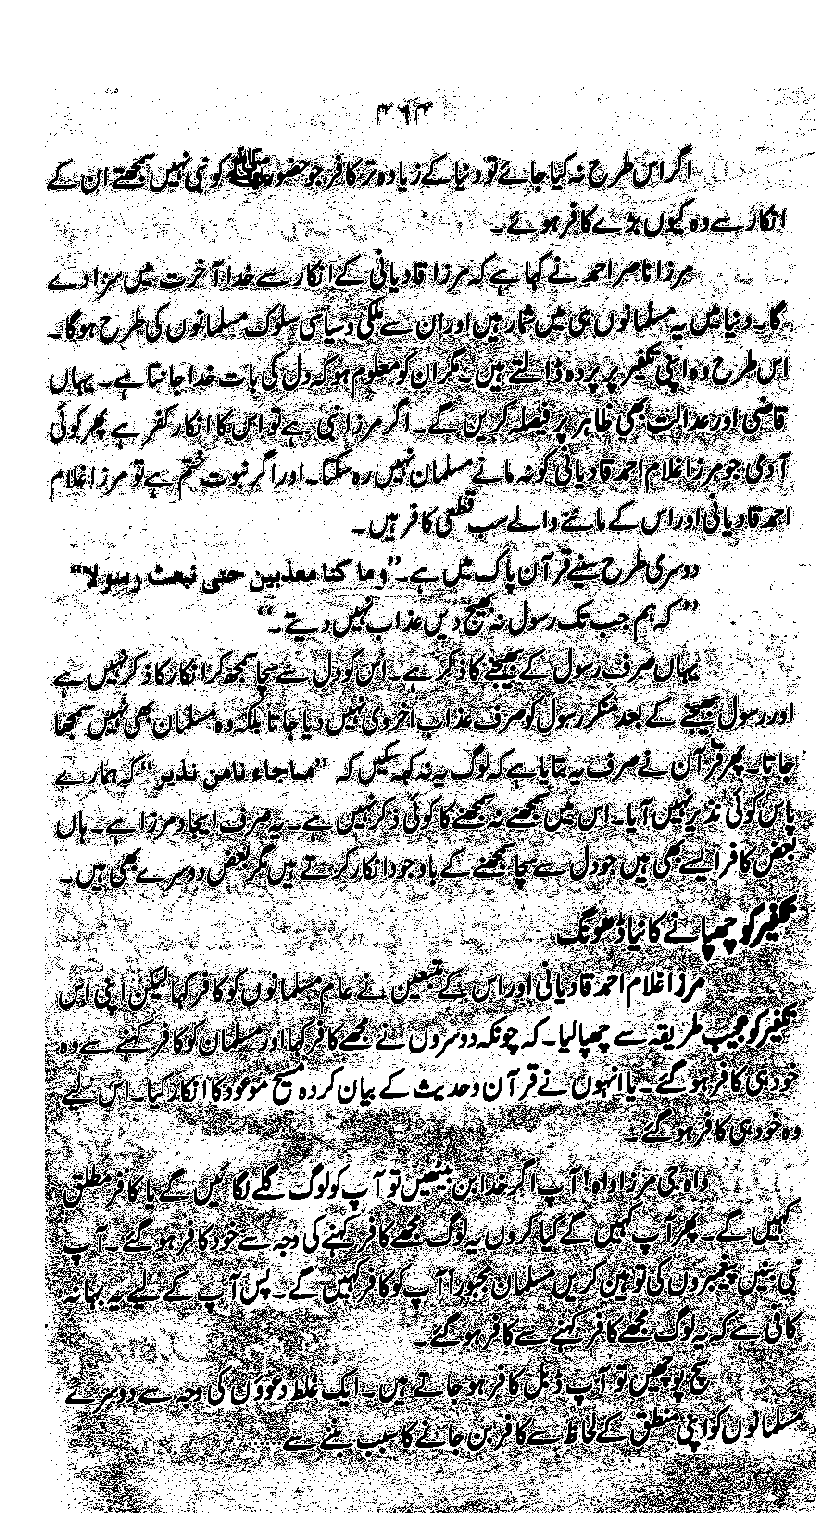 ۳۶۳
اگر اس طرح نہ کیا جائے تو دنیا کے زیادہ تر کافر جو حضور ﷺ کو نبی نہیں سمجھتے ان کے
انکار سے وہ کیوں بڑے کافر ہوئے۔
مرزا ناصر احمد نے کہا ہے کہ مرزا قادیانی کے انکار سے خدا آخرت میں سزا دے
گا۔ دنیا میں یہ مسلمانوں ہی میں شمار ہیں اور ان سے ملکی و سیاسی سلوک مسلمانوں کی طرح ہوگا۔
اس طرح وہ اپنی تکفیر پر پردہ ڈالتے ہیں۔ مگر ان کو معلوم ہو کہ دل کی بات خدا جانتا ہے۔ یہاں
قاضی اور عدالت بھی ظاہر پر فیصلہ کریں گے۔ اگر مرزا نبی ہے تو اس کا انکار کفر ہے پھر کوئی
آدمی جو مرزا غلام احمد قادیانی کو نہ مانے مسلمان نہیں رہ سکتا۔ اور اگر نبوت ختم ہے تو مرزا غلام
احمد قادیانی اور اس کے ماننے والے سب قطعی کافر ہیں۔
دوسری طرح سنئے قرآن پاک میں ہے۔ ”وما کنا معذبین حتی نبعث رسولا“
”کہ ہم جب تک رسول نہ بھیج دیں عذاب نہیں دیتے۔“
یہاں صرف رسول کے بھیجنے کا ذکر ہے۔ اس کو دل سے سچا سمجھ کر انکار کا ذکر نہیں ہے
اور رسول بھیجنے کے بعد منکر رسول کو صرف عذاب اخروی نہیں دیا جاتا بلکہ وہ مسلمان بھی نہیں سمجھا
جاتا۔ پھر قرآن نے صرف یہ بتایا ہے کہ لوگ یہ نہ کہہ سکیں کہ ”ماجاء نامن نذیر“ کہ ہمارے
پاس کوئی نذیر نہیں آیا۔ اس میں سمجھنے نہ سمجھنے کا کوئی ذکر نہیں ہے۔ یہ صرف ایجاد مرزا ہے۔ ہاں
بعض کافر ایسے بھی ہیں جو دل سے سچا سمجھنے کے باوجود انکار کرتے ہیں مگر بعض دوسرے بھی ہیں۔
تکفیر کو چھپانے کا نیا ڈھونگ
مرزا غلام احمد قادیانی اور اس کے متبعین نے عام مسلمانوں کو کافر کہا لیکن اپنی اس
تکفیر کو عجیب طریقہ سے چھپا لیا۔ کہ چونکہ دوسروں نے مجھے کافر کہا اور مسلمان کو کافر کہنے سے وہ
خود ہی کافر ہو گئے۔ یا انہوں نے قرآن و حدیث کے بیان کردہ مسیح موعود کا انکار کیا۔ اس لیے
وہ خود ہی کافر ہو گئے۔
واہ جی مرزا واہ! آپ اگر خدا بن بیٹھیں تو آپ کو لوگ گلے لگائیں گے یا کافر مطلق
کہیں گے۔ پھر آپ کہیں گے کیا کروں یہ لوگ مجھے کافر کہنے کی وجہ سے خود کافر ہو گئے۔ آپ
نبی بنیں پیغمبروں کی توہین کریں مسلمان مجبوراً آپ کو کافر کہیں گے۔ پس آپ کے لیے یہ بہانہ
کافی ہے کہ یہ لوگ مجھے کافر کہنے سے کافر ہو گئے۔
سچ پوچھیں تو آپ ڈبل کافر ہو جاتے ہیں۔ ایک غلط دعوؤں کی وجہ سے دوسرے
مسلمانوں کو اپنی منطق کے لحاظ سے کافر بن جانے کا سبب بننے سے